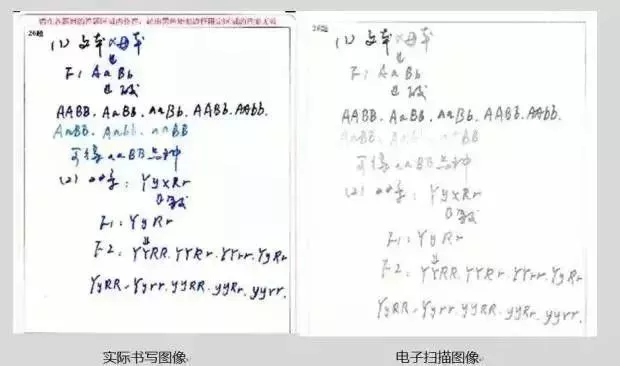 请在各题目的答题区域内作答，超出黑色矩形边框限定区域的答案无效
26题
(1) 父本×母本
↓
F1 AaBb
AABB、AaBB、aaBb、AABb、AAbb、
AaBB、Aabb、aaBB
可得aaBB品种
(2) 四季：YyxRr
F1：YyRr
↓
F2：YYRR、YYRr、YYrr、YyRr
YyRR、Yyrr、yyRR、yyRr、yyrr、
26题
(1) 父本×母本
↓
F1 AaBb
AABB、AaBB、aaBb、AABb、AAbb、
AaBB、Aabb、aaBB
可得aaBB品种
YyxRr
F1：YyRr
↓
F2：YYRR、YYRr、YYrr、YyRr
YyRR、Yyrr、yyRR、yyRr、yyrr、
实际书写图像
电子扫描图像